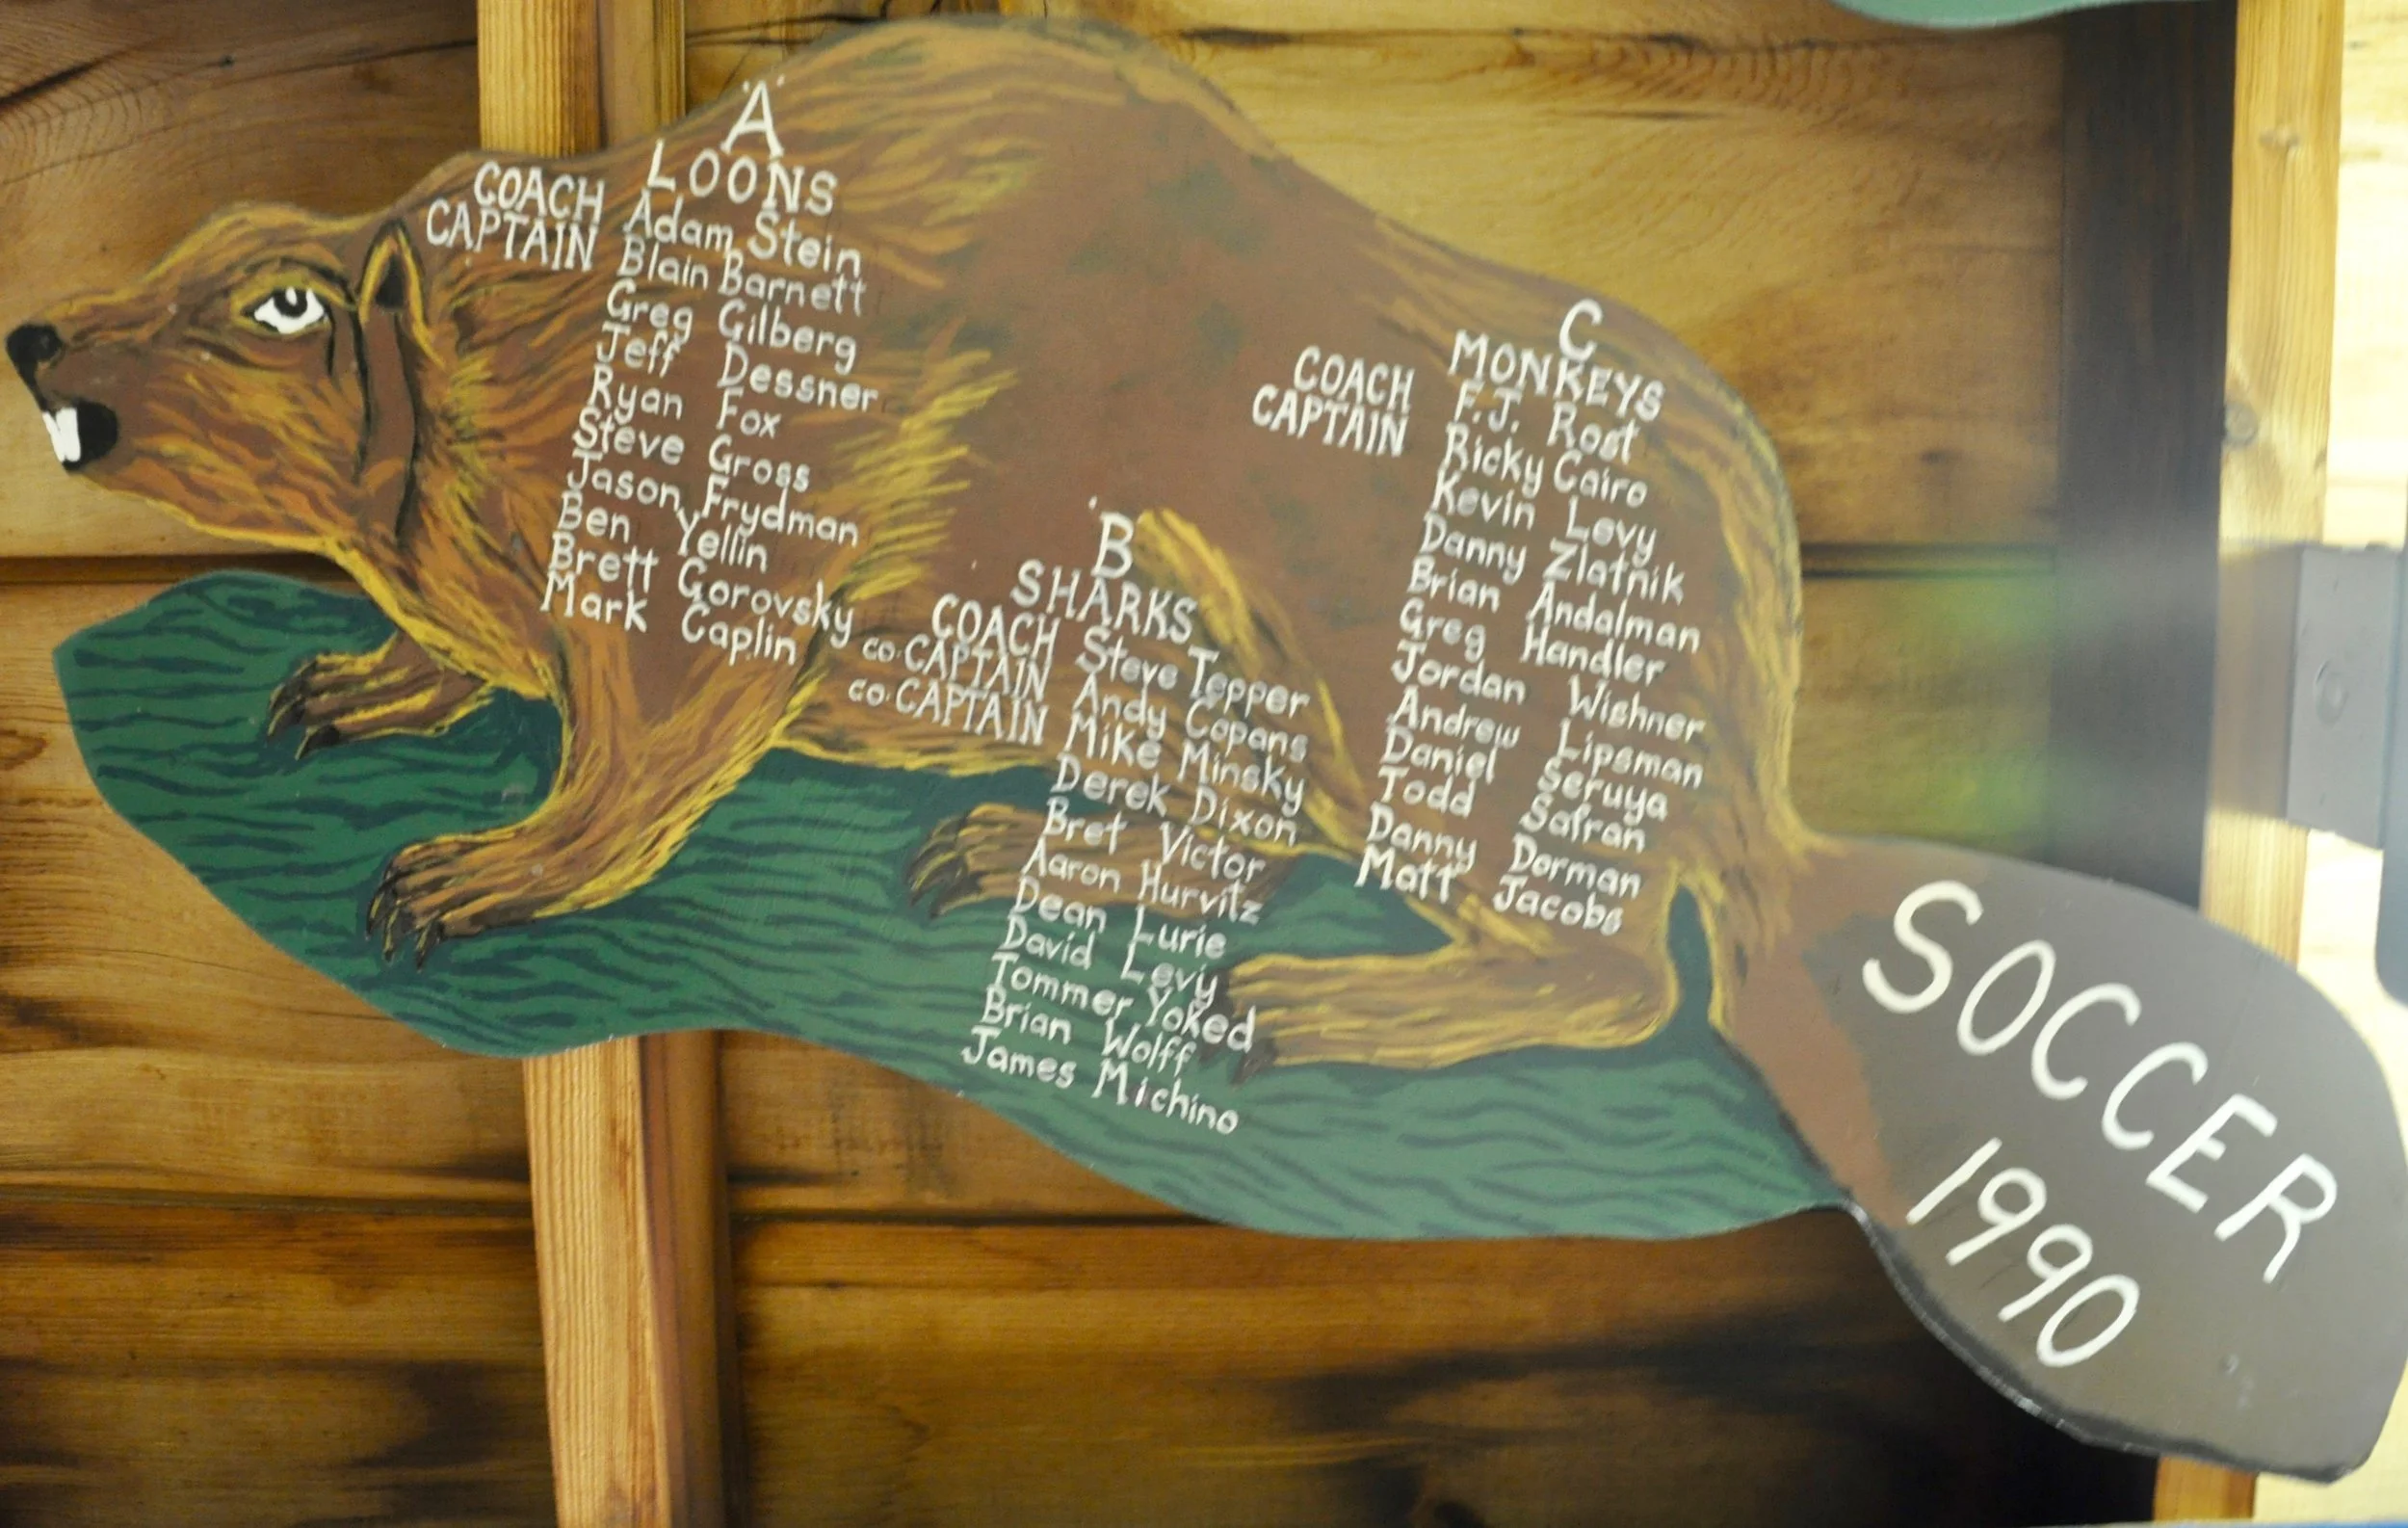 "A"
LOONS
COACH Adam Stein
CAPTAIN Blain Barnett
Greg Gilberg
Jeff Dessner
Ryan Fox
Steve Gross
Jason Frydman
Ben Yellin
Brett Gorovsky
Mark Caplin
'B
SHARKS
COACH Steve Tepper
co-CAPTAIN Andy Copans
co-CAPTAIN Mike Minsky
Derek Dixon
Bret Victor
Aaron Hurvitz
Dean Lurie
David Levy
Tommer Yoked
Brian Wolff
James Michino
C
MONKEYS
COACH F.J. Rost
CAPTAIN Ricky Cairo
Kevin Levy
Danny Zlatnik
Brian Andalman
Greg Handler
Jordan Wishner
Andrew Lipsman
Daniel Seruya
Todd Safran
Danny Dorman
Matt Jacobs
SOCCER
1990